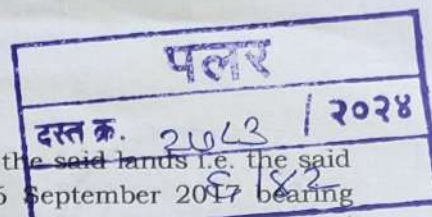 पलर
दस्त क्र. २७८३ / २०२४
the said lands i.e. the said
६ / ४२
September 2017 bearing